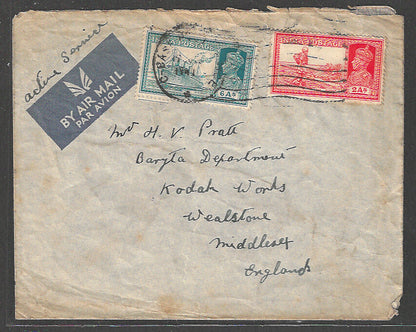 active Service
BY AIR MAIL
PAR AVION
INDIA POSTAGE
6As
INDIA POSTAGE
2As
Mr H. V. Pratt
Baryta Department
Kodak Works
Wealstone
Middlesex
England